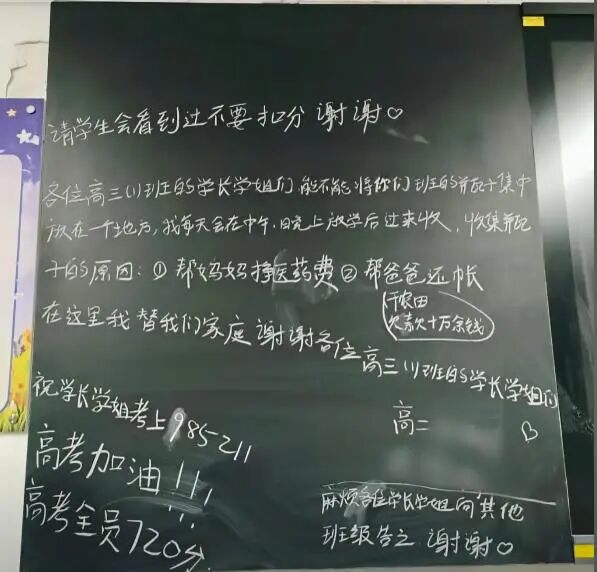 请学生会看到过不要扣分 谢谢♡
各位高三(1)班的学长学姐们,能不能将你们班的并配十集中
放在一个地方,我每天会在中午、晚上放学后过来收,收集并配
十的原因:① 帮妈妈挣医药费② 帮爸爸还帐
干农田
欠款十万余钱
在这里我替我们家庭谢谢各位高三(1)班的学长学姐们
高二 ♡
祝学长学姐考上985211
高考加油!!!
高考全员720分
麻烦各位学长学姐向其他
班级告之 谢谢♡